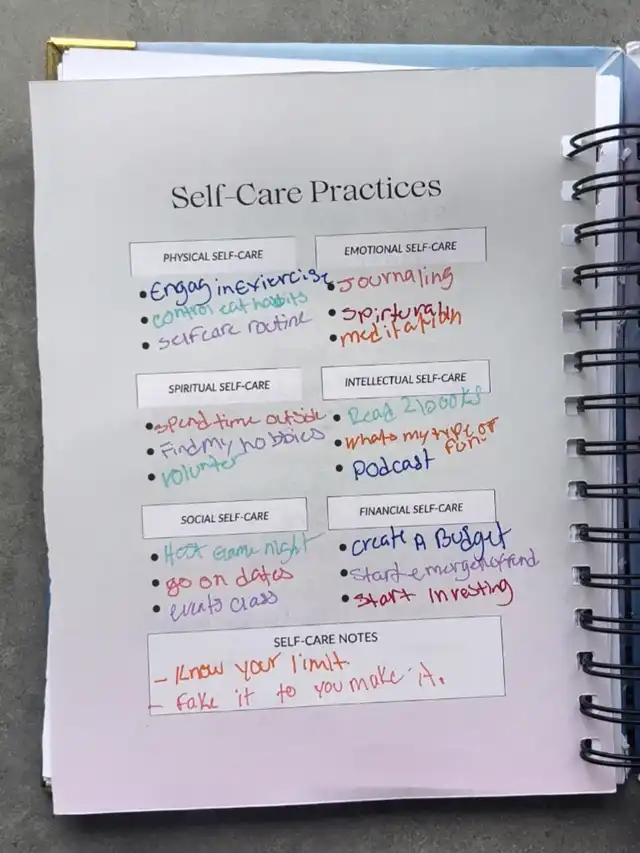 Self-Care Practices
PHYSICAL SELF-CARE
• Engag in Exiercise
• control eat habbits
• selfcare routine
EMOTIONAL SELF-CARE
• Journaling
• Spirturality
• meditation
SPIRITUAL SELF-CARE
• spend time outside
• Find my hobbies
• volunter
INTELLECTUAL SELF-CARE
• Read 2 books
• whats my type of
fun.
• podcast
SOCIAL SELF-CARE
• Host Game night
• go on dates
• events class
FINANCIAL SELF-CARE
• create A Budget
• Start emergency fund
• Start Investing
SELF-CARE NOTES
- Know your limit.
- Fake it to you make it.